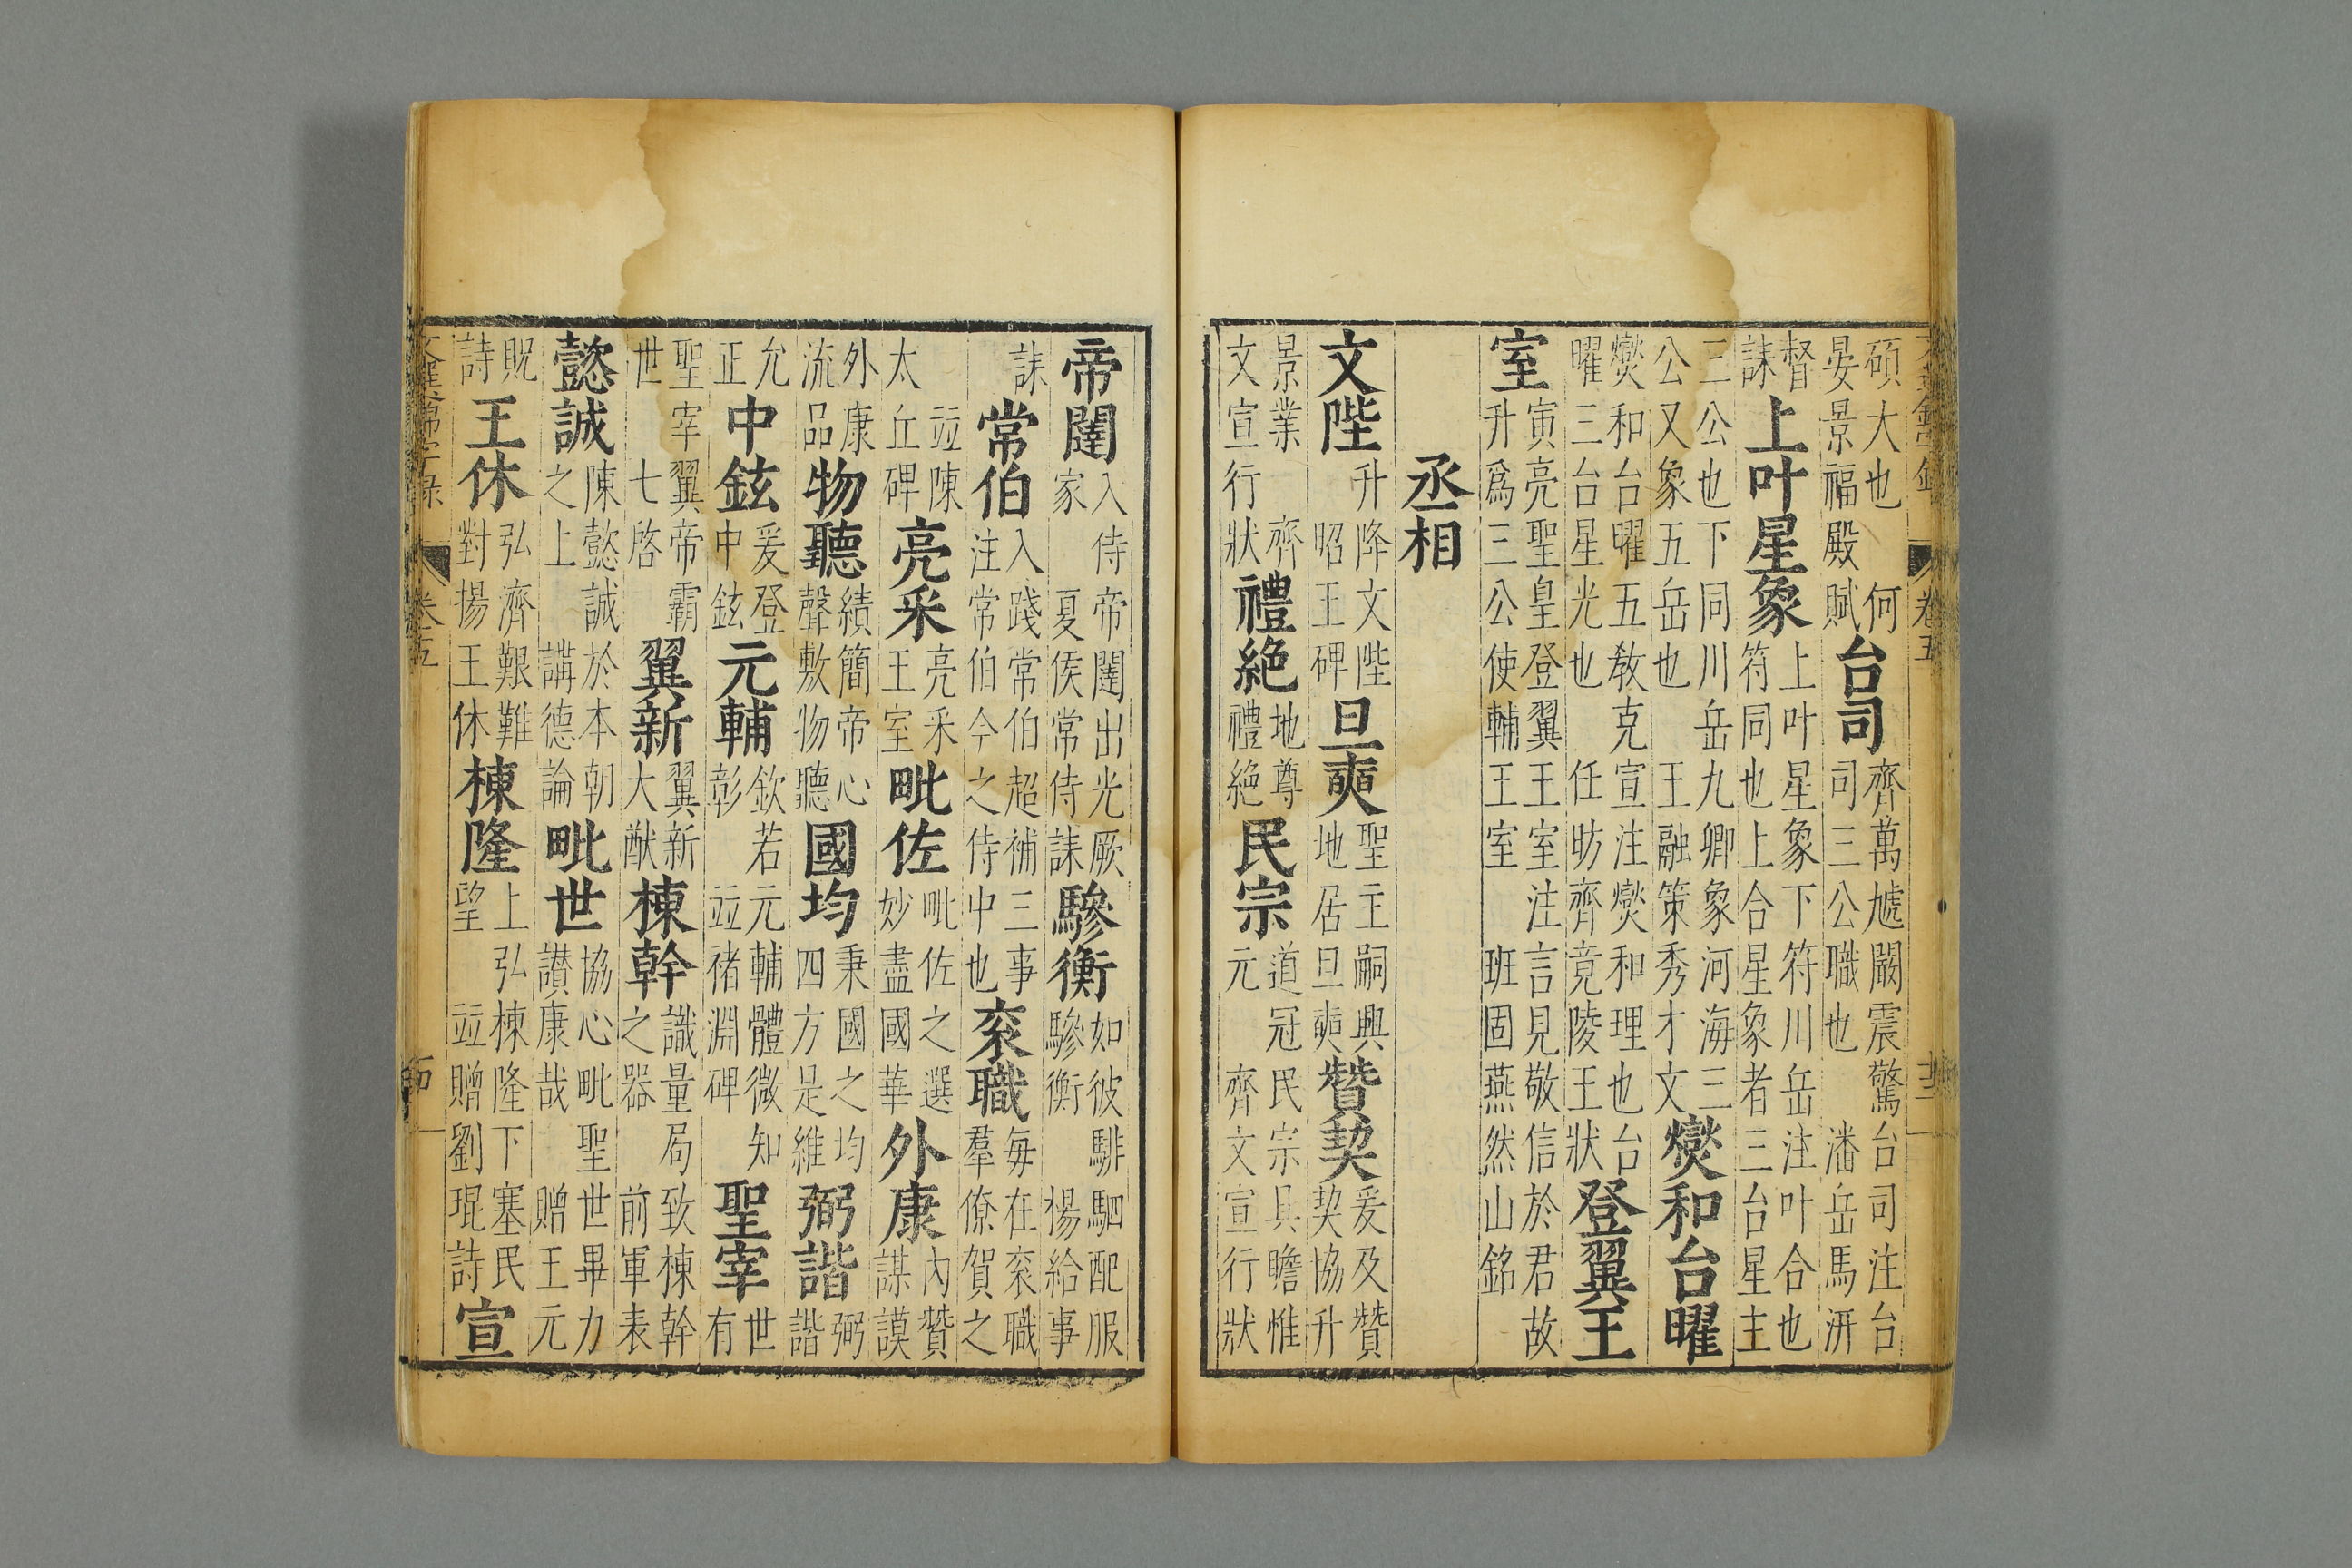 碩大也　何晏景福殿賦台司齊萬虓闞震驚台司注台司三公職也　潘岳馬汧
督誄上叶星象上叶星象下符川岳注叶合也符同也上合星象者三台星主
三公也下同川岳九卿象河海三公又象五岳也　王融策秀才文燮和台曜
燮和台曜五教克宣注燮和理也台曜三台星光也　任昉齊竟陵王狀登翼王
室寅亮聖皇登翼王室注言見敬信於君故升爲三公使輔王室　班固燕然山銘
丞相
文陛升降文陛昭王碑旦奭聖主嗣興地居旦奭贊契爰及贊契協升
景業　齊文宣行狀禮絕地尊禮絕民宗道冠民宗具瞻惟元　齊文宣行狀
帝闥入侍帝闥出光厥家　夏侯常侍誄驂衡如彼騑駟配服驂衡　揚給事
誄常伯入踐常伯超補三事注常伯今之侍中也袞職每在袞職羣僚賀之
並陳太丘碑亮采亮采王室毗佐毗佐之選妙盡國華外康內贊謀謨
外康流品物聽績簡帝心聲敷物聽國均秉國之均四方是維弼諧弼諧
允正中鉉爰登中鉉元輔欽若元輔體微知彰　並褚淵碑聖宰世有
聖宰翼帝霸世　七啓翼新翼新大猷棟幹識量局致棟幹之器　前軍表
懿誠陳懿誠於本朝之上　講德論毗世協心毗聖世畢力讚康哉　贈王元
貺詩王休弘濟艱難對揚王休棟隆上弘棟隆下塞民望　並贈劉琨詩宣
文選錦字錄　卷五